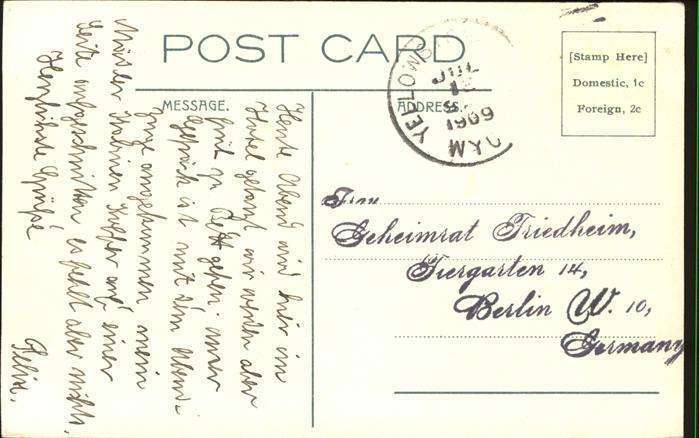 POST CARD
MESSAGE.
ADDRESS.
[Stamp Here]
Domestic, 1c
Foreign, 2c
YELLOW
JUL
1909
WY
Heute Abend wird hier im
Hotel getanzt wir werden aber
früh zu Bett gehen. unser
Gepäck ist mit dem Abend-
zuge angekommen mein
Koffer auf einer
Seite aufgeschnitten es fehlt aber nichts
Herzlichste Grüße
Felix.
Frau
Geheimrat Friedheim,
Tiergarten 14,
Berlin W. 10,
Germany